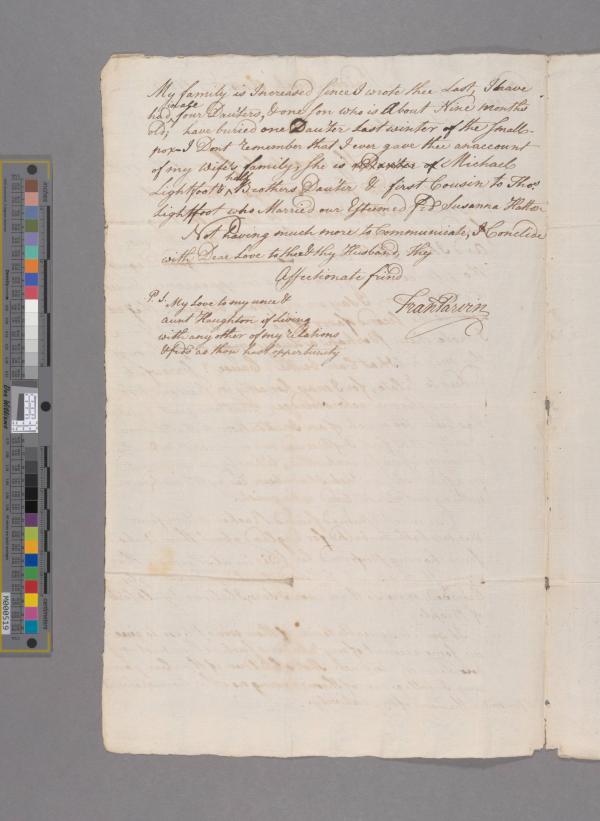 My family is Increased since I wrote thee Last, I have
had four Dauters, & one son who is About Nine months
old; have buried one Dauter Last winter of the Small-
pox - I Dont remember that I ever gave thee an account
of my wife's family, She is Dauter of Michael
Lightfoot's half Brothers Dauter & first Cousin to Thos.
Lightfoot who Married our Esteemed fd Susanna Hatton
Not having much more to Communicate, I Conclude
with Dear Love to thee & thy Husband, thy
Affectionate frind
Fran Parvin
P.S. My Love to my unce &
aunt Haughton if Living
with any other of my relations
& fds as thou hast oppertunity
inches
centimeters
M000519